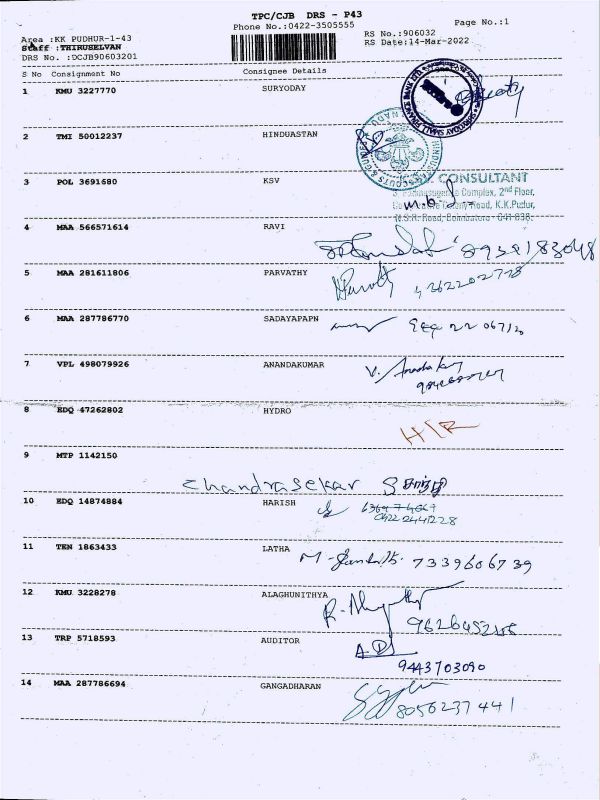 TPC/CJB DRS - P43
Phone No.:0422-3505555
Page No.:1
Area :KK PUDHUR-1-43
RS No.:906032
Staff :THIRUSELVAN
RS Date:14-Mar-2022
DRS No. :DCJB90603201
S No Consignment No Consignee Details
1 KMU 3227770 SURYODAY
2 TMI 50012237 HINDUASTAN
3 POL 3691680 KSV
CONSULTANT
Complex, 2nd Floor,
Colony Road, K.K.Pudur,
Road, Coimbatore - 641 038.
4 MAA 566571614 RAVI
5 MAA 281611806 PARVATHY
6 MAA 287786770 SADAYAPAPN
7 VPL 498079926 ANANDAKUMAR
V. 
8 EDQ 47262802 HYDRO
H/R
9 MTP 1142150
Chandrasekar S
10 EDQ 14874884 HARISH
11 TEN 1863433 LATHA
7339606739
12 KMU 3228278 ALAGHUNITHYA
13 TRP 5718593 AUDITOR
9443703090
14 MAA 287786694 GANGADHARAN
8056237441